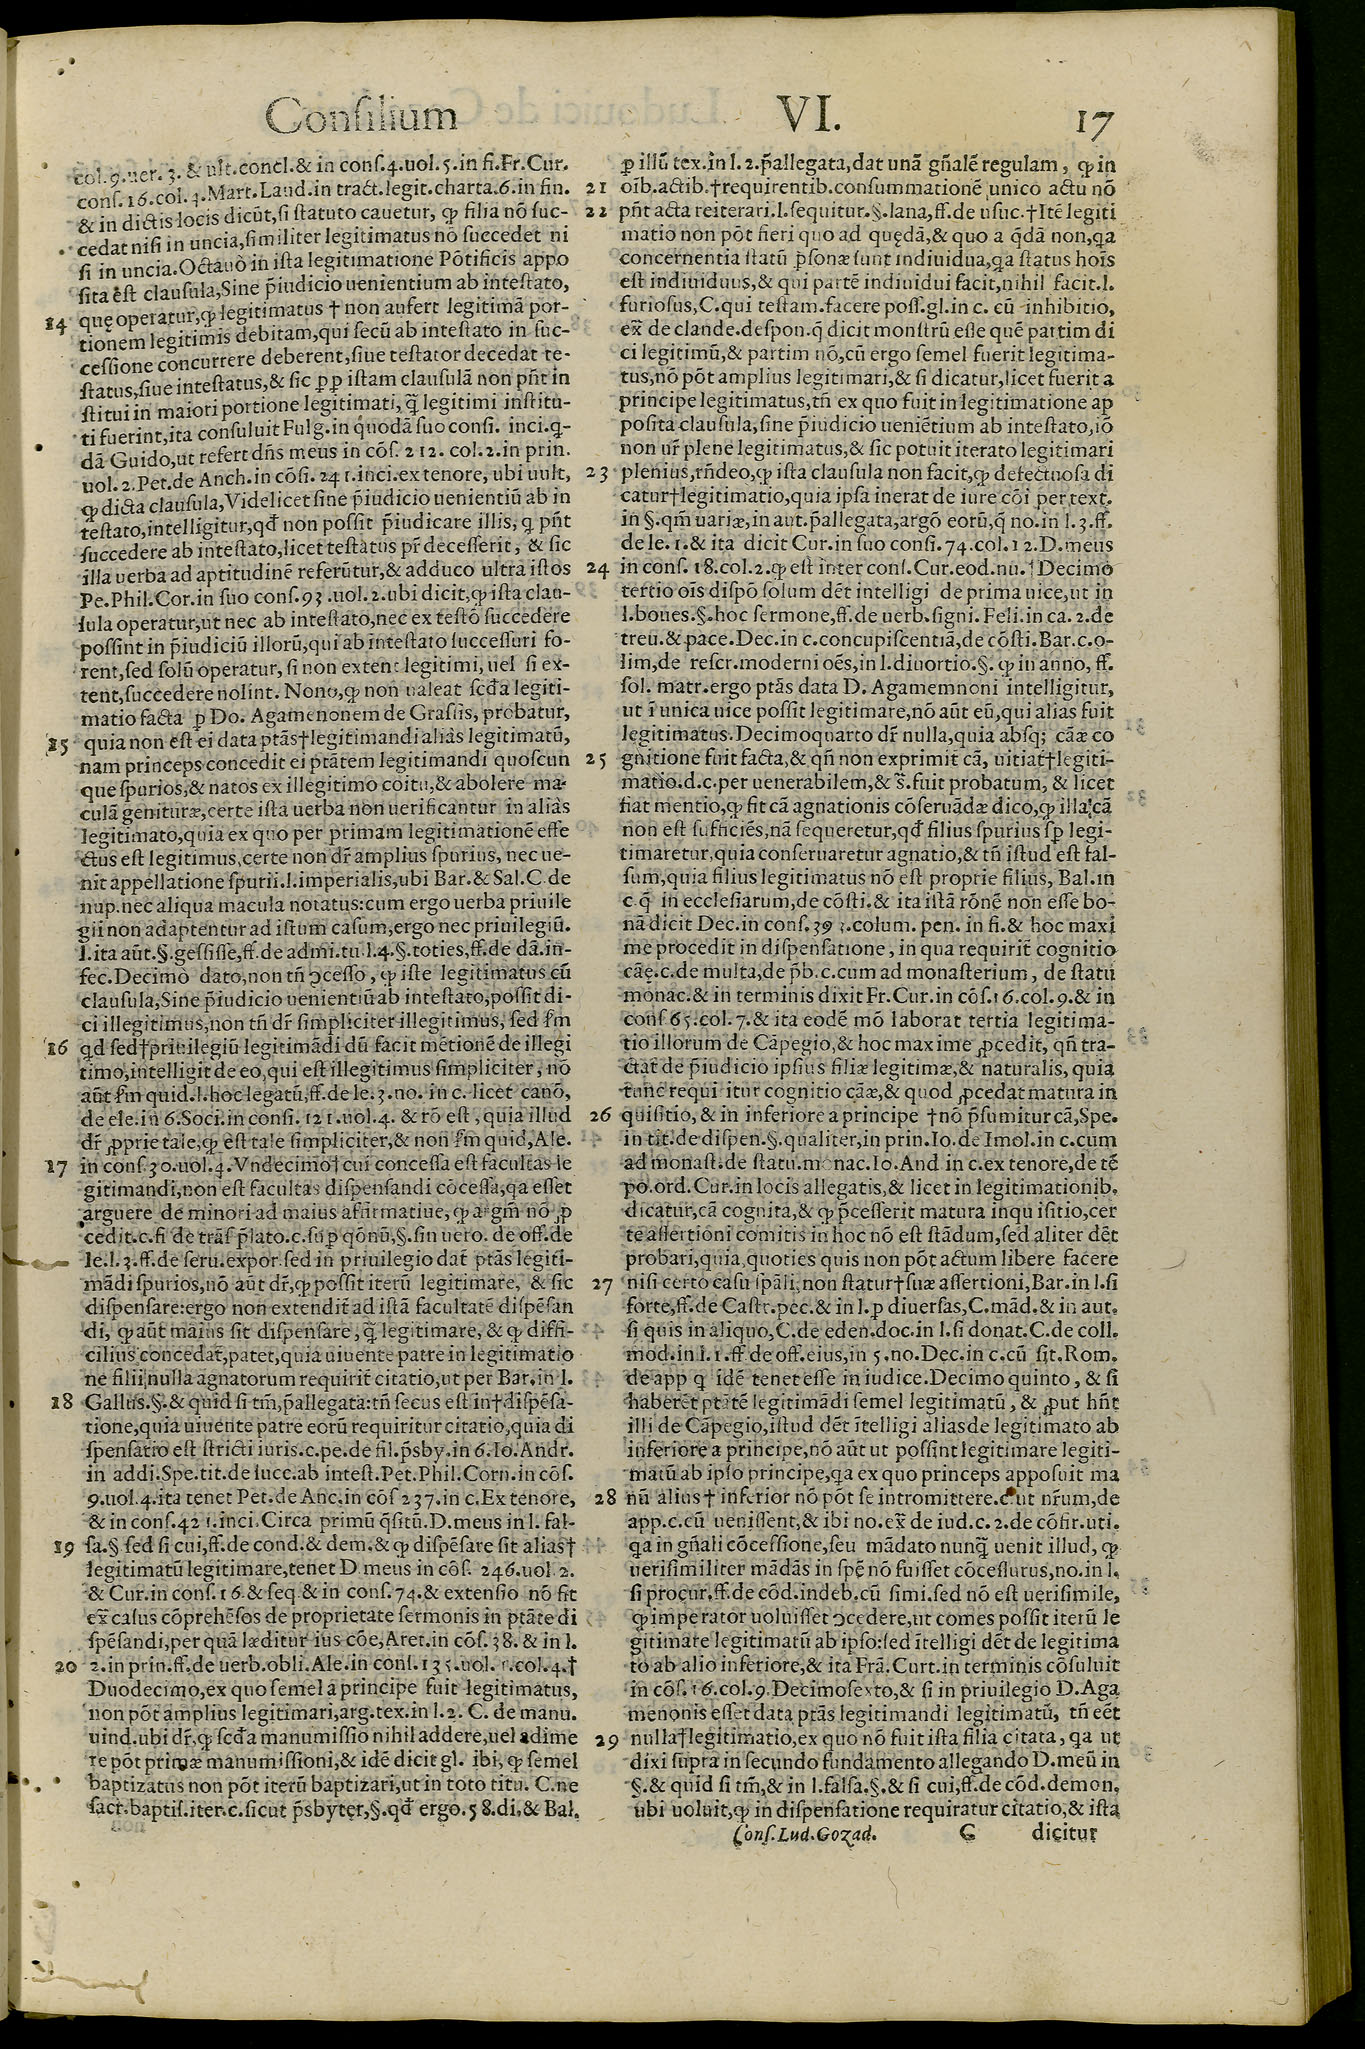 Consilium VI. 17
col. 9. uer. 3. & ult. concl. & in cons. 4. uol. 5. in fi. Fr. Cur.
cons. 16. col. 4. Mart. Laud. in tract. legit. charta. 6. in fin.
& in dictis locis dicūt, si statuto cauetur, ꝙ filia nō suc-
cedat nisi in uncia, similiter legitimatus nō succedet ni
si in uncia. Octauò in ista legitimatione Pōtificis appo
sita est clausula, Sine p̄iudicio uenientium ab intestato,
14 quę operatur, ꝙ legitimatus † non aufert legitimā por-
tionem legitimis debitam, qui secū ab intestato in suc-
cessione concurrere deberent, siue testator decedat te-
status, siue intestatus, & sic ꝓp istam clausulā non pn̄t in
stitui in maiori portione legitimati, q̄ legitimi institu-
ti fuerint, ita consuluit Fulg. in quodā suo consi. inci. q-
dā Guido, ut refert dn̄s meus in cōs. 212. col. 2. in prin.
uol. 2. Pet. de Anch. in cōsi. 241. inci. ex tenore, ubi uult,
ꝙ dicta clausula, Videlicet sine p̄iudicio uenientiū ab in
testato, intelligitur, qđ non possit p̄iudicare illis, q pn̄t
succedere ab intestato, licet testatus pr̄ decesserit, & sic
illa uerba ad aptitudinē referūtur, & adduco ultra istos
Pe. Phil. Cor. in suo cons. 93. uol. 2. ubi dicit, ꝙ ista clau-
sula operatur, ut nec ab intestato, nec ex testō succedere
possint in p̄iudiciū illorū, qui ab intestato successuri fo-
rent, sed solū operatur, si non extent legitimi, uel si ex-
tent, succedere nolint. Nono, ꝙ non ualeat scđa legiti-
matio facta ꝑ Do. Agamenonem de Grassis, probatur,
15 quia non est ei data ptās † legitimandi aliàs legitimatū,
nam princeps concedit ei ptātem legitimandi quoscun
que spurios, & natos ex illegitimo coitu, & abolere ma-
culā genituræ, certe ista uerba non uerificantur in aliàs
legitimato, quia ex quo per primam legitimationē effe
ctus est legitimus, certe non dr̄ amplius spurius, nec ue-
nit appellatione spurii. l. imperialis, ubi Bar. & Sal. C. de
nup. nec aliqua macula notatus: cum ergo uerba priuile
gii non adaptentur ad istum casum, ergo nec priuilegiū.
l. ita aūt. §. gessisse, ff. de admi. tu. l. 4. §. toties, ff. de dā. in-
fec. Decimò dato, non tn̄ ɔcesso, ꝙ iste legitimatus cū
clausula, Sine p̄iudicio uenientiū ab intestato, possit di-
ci illegitimus, non tn̄ dr̄ simpliciter illegitimus, sed sm̄
16 qd sed † priuilegiū legitimādi dū facit mētionē de illegi
timo, intelligit de eo, qui est illegitimus simpliciter, nō
aūt sm̄ quid. l. hoc legatū, ff. de le. 3. no. in c. licet canō,
de ele. in 6. Soci. in consi. 121. uol. 4. & rō est, quia illud
dr̄ ꝓprie tale, ꝙ est tale simpliciter, & non sm̄ quid, Ale.
17 in cons. 30. uol. 4. Vndecimo † cui concessa est facultas le
gitimandi, non est facultas dispensandi cōcessa, qa esset
arguere de minori ad maius affirmatiue, ꝙ argm̄ nō ꝓ
cedit. c. fi de trāsl p̄lato. c. suꝑ qōnū, §. sin uero. de off. de
le. l. 3. ff. de seru. expor. sed in priuilegio dat̄ ptās legiti-
mādi spurios, nō aūt dr̄, ꝙ possit iterū legitimare, & sic
dispensare: ergo non extendit̄ ad istā facultatē dispēsan
di, ꝙ aūt maius sit dispensare, q̄ legitimare, & ꝙ diffi-
cilius concedat̄, patet, quia uiuente patre in legitimatio
ne filii, nulla agnatorum requirit̄ citatio, ut per Bar. in l.
18 Gallus. §. & quid si tm̄, p̄allegata: tn̄ secus est in † dispēsa-
tione, quia uiuente patre eorū requiritur citatio, quia di
spensatio est stricti iuris. c. pe. de fil. p̄sby. in 6. Io. Andr.
in addi. Spe. tit. de succ. ab intest. Pet. Phil. Corn. in cōs.
9. uol. 4. ita tenet Pet. de Anc. in cōs 237. in c. Ex tenore,
& in cons. 421. inci. Circa primū q̄sitū. D. meus in l. fal-
19 sa. § sed si cui, ff. de cond. & dem. & ꝙ dispēsare sit alias †
legitimatū legitimare, tenet D. meus in cōs. 246. uol 2.
& Cur. in cons. 16. & seq. & in cons. 74. & extensio nō fit
ex̄ casus cōprehēsos de proprietate sermonis in ptāte di
spēsandi, per quā læditur ius cōe, Aret. in cōs. 38. & in l.
20 2. in prin. ff. de uerb. obli. Ale. in cons. 135. uol. 1. col. 4. †
Duodecimo, ex quo semel a principe fuit legitimatus,
non pōt amplius legitimari, arg. tex. in l. 2. C. de manu.
uind. ubi dr̄, ꝙ scđa manumissio nihil addere, uel adime
re pōt primæ manumissioni, & idē dicit gl. ibi, ꝙ semel
baptizatus non pōt iterū baptizari, ut in toto titu. C. ne
sacr. baptis. iter. c. sicut p̄sbyter, §. qđ ergo. 58. di. & Bal.
ꝑ illū tex. in l. 2. p̄allegata, dat unā gn̄alē regulam, ꝙ in
21 oīb. actib. † requirentib. consummationē unico actu nō
22 pn̄t acta reiterari. l. sequitur. §. lana, ff. de usuc. † Itē legiti
matio non pōt fieri quo ad quędā, & quo a q̄dā non, qa
concernentia statū ꝑsonæ sunt indiuidua, qa status hoīs
est indiuiduus, & qui partē indiuidui facit, nihil facit. l.
furiosus, C. qui testam. facere poss. gl. in c. cū inhibitio,
ex̄ de clande. despon. q̄ dicit monstrū esse quē partim di
ci legitimū, & partim nō, cū ergo semel fuerit legitima-
tus, nō pōt amplius legitimari, & si dicatur, licet fuerit a
principe legitimatus, tn̄ ex quo fuit in legitimatione ap
posita clausula, sine p̄iudicio ueniētium ab intestato, iō
non ur̄ plene legitimatus, & sic potuit iterato legitimari
23 plenius, rn̄deo, ꝙ ista clausula non facit, ꝙ defectuosa di
catur † legitimatio, quia ipsa inerat de iure cōi per text.
in §. qm̄ uariæ, in aut. p̄allegata, argō eorū, q̄ no. in l. 3. ff.
de le. 1. & ita dicit Cur. in suo consi. 74. col. 12. D. meus
24 in cons. 18. col. 2. ꝙ est inter cons. Cur. eod. nu. † Decimo
tertio oīs dispō solum dēt intelligi de prima uice, ut in
l. boues. §. hoc sermone, ff. de uerb. signi. Feli. in ca. 2. de
treu. & pace. Dec. in c. concupiscentiā, de cōsti. Bar. c. o-
lim, de rescr. moderni oēs, in l. diuortio. §. ꝙ in anno, ff.
sol. matr. ergo ptās data D. Agamemnoni intelligitur,
ut ī unica uice possit legitimare, nō aūt eū, qui alias fuit
legitimatus. Decimoquarto dr̄ nulla, quia absq; cāæ co
25 gnitione fuit facta, & qn̄ non exprimit cā, uitiat̄ † legiti-
matio. d. c. per uenerabilem, & s̄. fuit probatum, & licet
fiat mentio, ꝙ fit cā agnationis cōseruādæ dico, ꝙ illa cā
non est sufficiēs, nā sequeretur, qđ filius spurius sꝑ legi-
timaretur, quia conseruaretur agnatio, & tn̄ istud est fal-
sum, quia filius legitimatus nō est proprie filius, Bal. in
c. q̄ in ecclesiarum, de cōsti. & ita istā rōnē non esse bo-
nā dicit Dec. in cons. 393. colum. pen. in fi. & hoc maxi
me procedit in dispensatione, in qua requirit̄ cognitio
cāę. c. de multa, de p̄b. c. cum ad monasterium, de statu
monac. & in terminis dixit Fr. Cur. in cōs. 16. col. 9. & in
cons 65. col. 7. & ita eodē mō laborat tertia legitima-
tio illorum de Cāpegio, & hoc maxime ꝓcedit, qn̄ tra-
ctat̄ de p̄iudicio ipsius filiæ legitimæ, & naturalis, quia
tunc requiritur cognitio cāæ, & quod ꝓcedat matura in
26 quisitio, & in inferiore a principe † nō p̄sumitur cā, Spe.
in tit. de dispen. §. qualiter, in prin. Io. de Imol. in c. cum
ad monast. de statu. monac. Io. And in c. ex tenore, de tē
po. ord. Cur. in locis allegatis, & licet in legitimationib.
dicatur, cā cognita, & ꝙ p̄cesserit matura inquisitio, cer
te assertioni comitis in hoc nō est stādum, sed aliter dēt
probari, quia quoties quis non pōt actum libere facere
27 nisi certo casu spāli, non statur † suæ assertioni, Bar. in l. si
forte, ff. de Castr. pec. & in l. ꝑ diuersas, C. mād. & in aut.
si quis in aliquo, C. de eden. doc. in l. si donat. C. de coll.
mod. in l. 1. ff. de off. eius, in 5. no. Dec. in c. cū sit. Rom.
de app q idē tenet esse in iudice. Decimo quinto, & si
haberēt ptātē legitimādi semel legitimatū, & ꝓut hn̄t
illi de Cāpegio, istud dēt ītelligi alias de legitimato ab
inferiore a principe, nō aūt ut possint legitimare legiti-
matū ab ipso principe, qa ex quo princeps apposuit ma
28 nū alius † inferior nō pōt se intromittere. c. ut nr̄um, de
app. c. cū uenissent, & ibi no. ex̄ de iud. c. 2. de cōfir. uti.
qa in gn̄ali cōcessione, seu mādato nunq̄ uenit illud, ꝙ
uerisimiliter mādās in spē nō fuisset cōcessurus, no. in l.
si procur. ff. de cōd. indeb. cū simi. sed nō est uerisimile,
ꝙ imperator uoluisset ɔcedere, ut comes possit iterū le
gitimare legitimatū ab ipso: sed ītelligi dēt de legitima
to ab alio inferiore, & ita Frā. Curt. in terminis cōsuluit
in cōs. 16. col. 9. Decimosexto, & si in priuilegio D. Aga
menonis esset data ptās legitimandi legitimatū, tn̄ eēt
29 nulla † legitimatio, ex quo nō fuit ista filia citata, qa ut
dixi supra in secundo fundamento allegando D. meū in
§. & quid si tm̄, & in l. falsa. §. & si cui, ff. de cōd. demon.
ubi uoluit, ꝙ in dispensatione requiratur citatio, & ista
Cons. Lud. Gozad. C dicitur